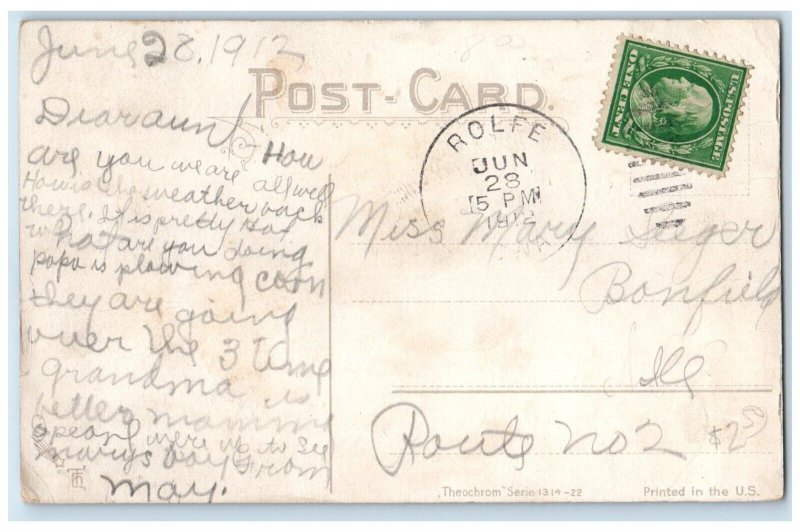 June 28, 1912
POST-CARD.
ONE CENT
U.S. POSTAGE
ROLFE
JUN
28
5 PM
Dear aunt How
are you we are all well
How is the weather back
there. It is pretty Hot
what are you doing
papa is plowing corn
they are going
over the 3 time
grandma is
better mamma
& pearl were up to see
marys boy From
May.
Miss Mary Seeger
Bonfield
Ill
Route No 2
$2 50
"Theochrom" Serie 1314-22
Printed in the U.S.